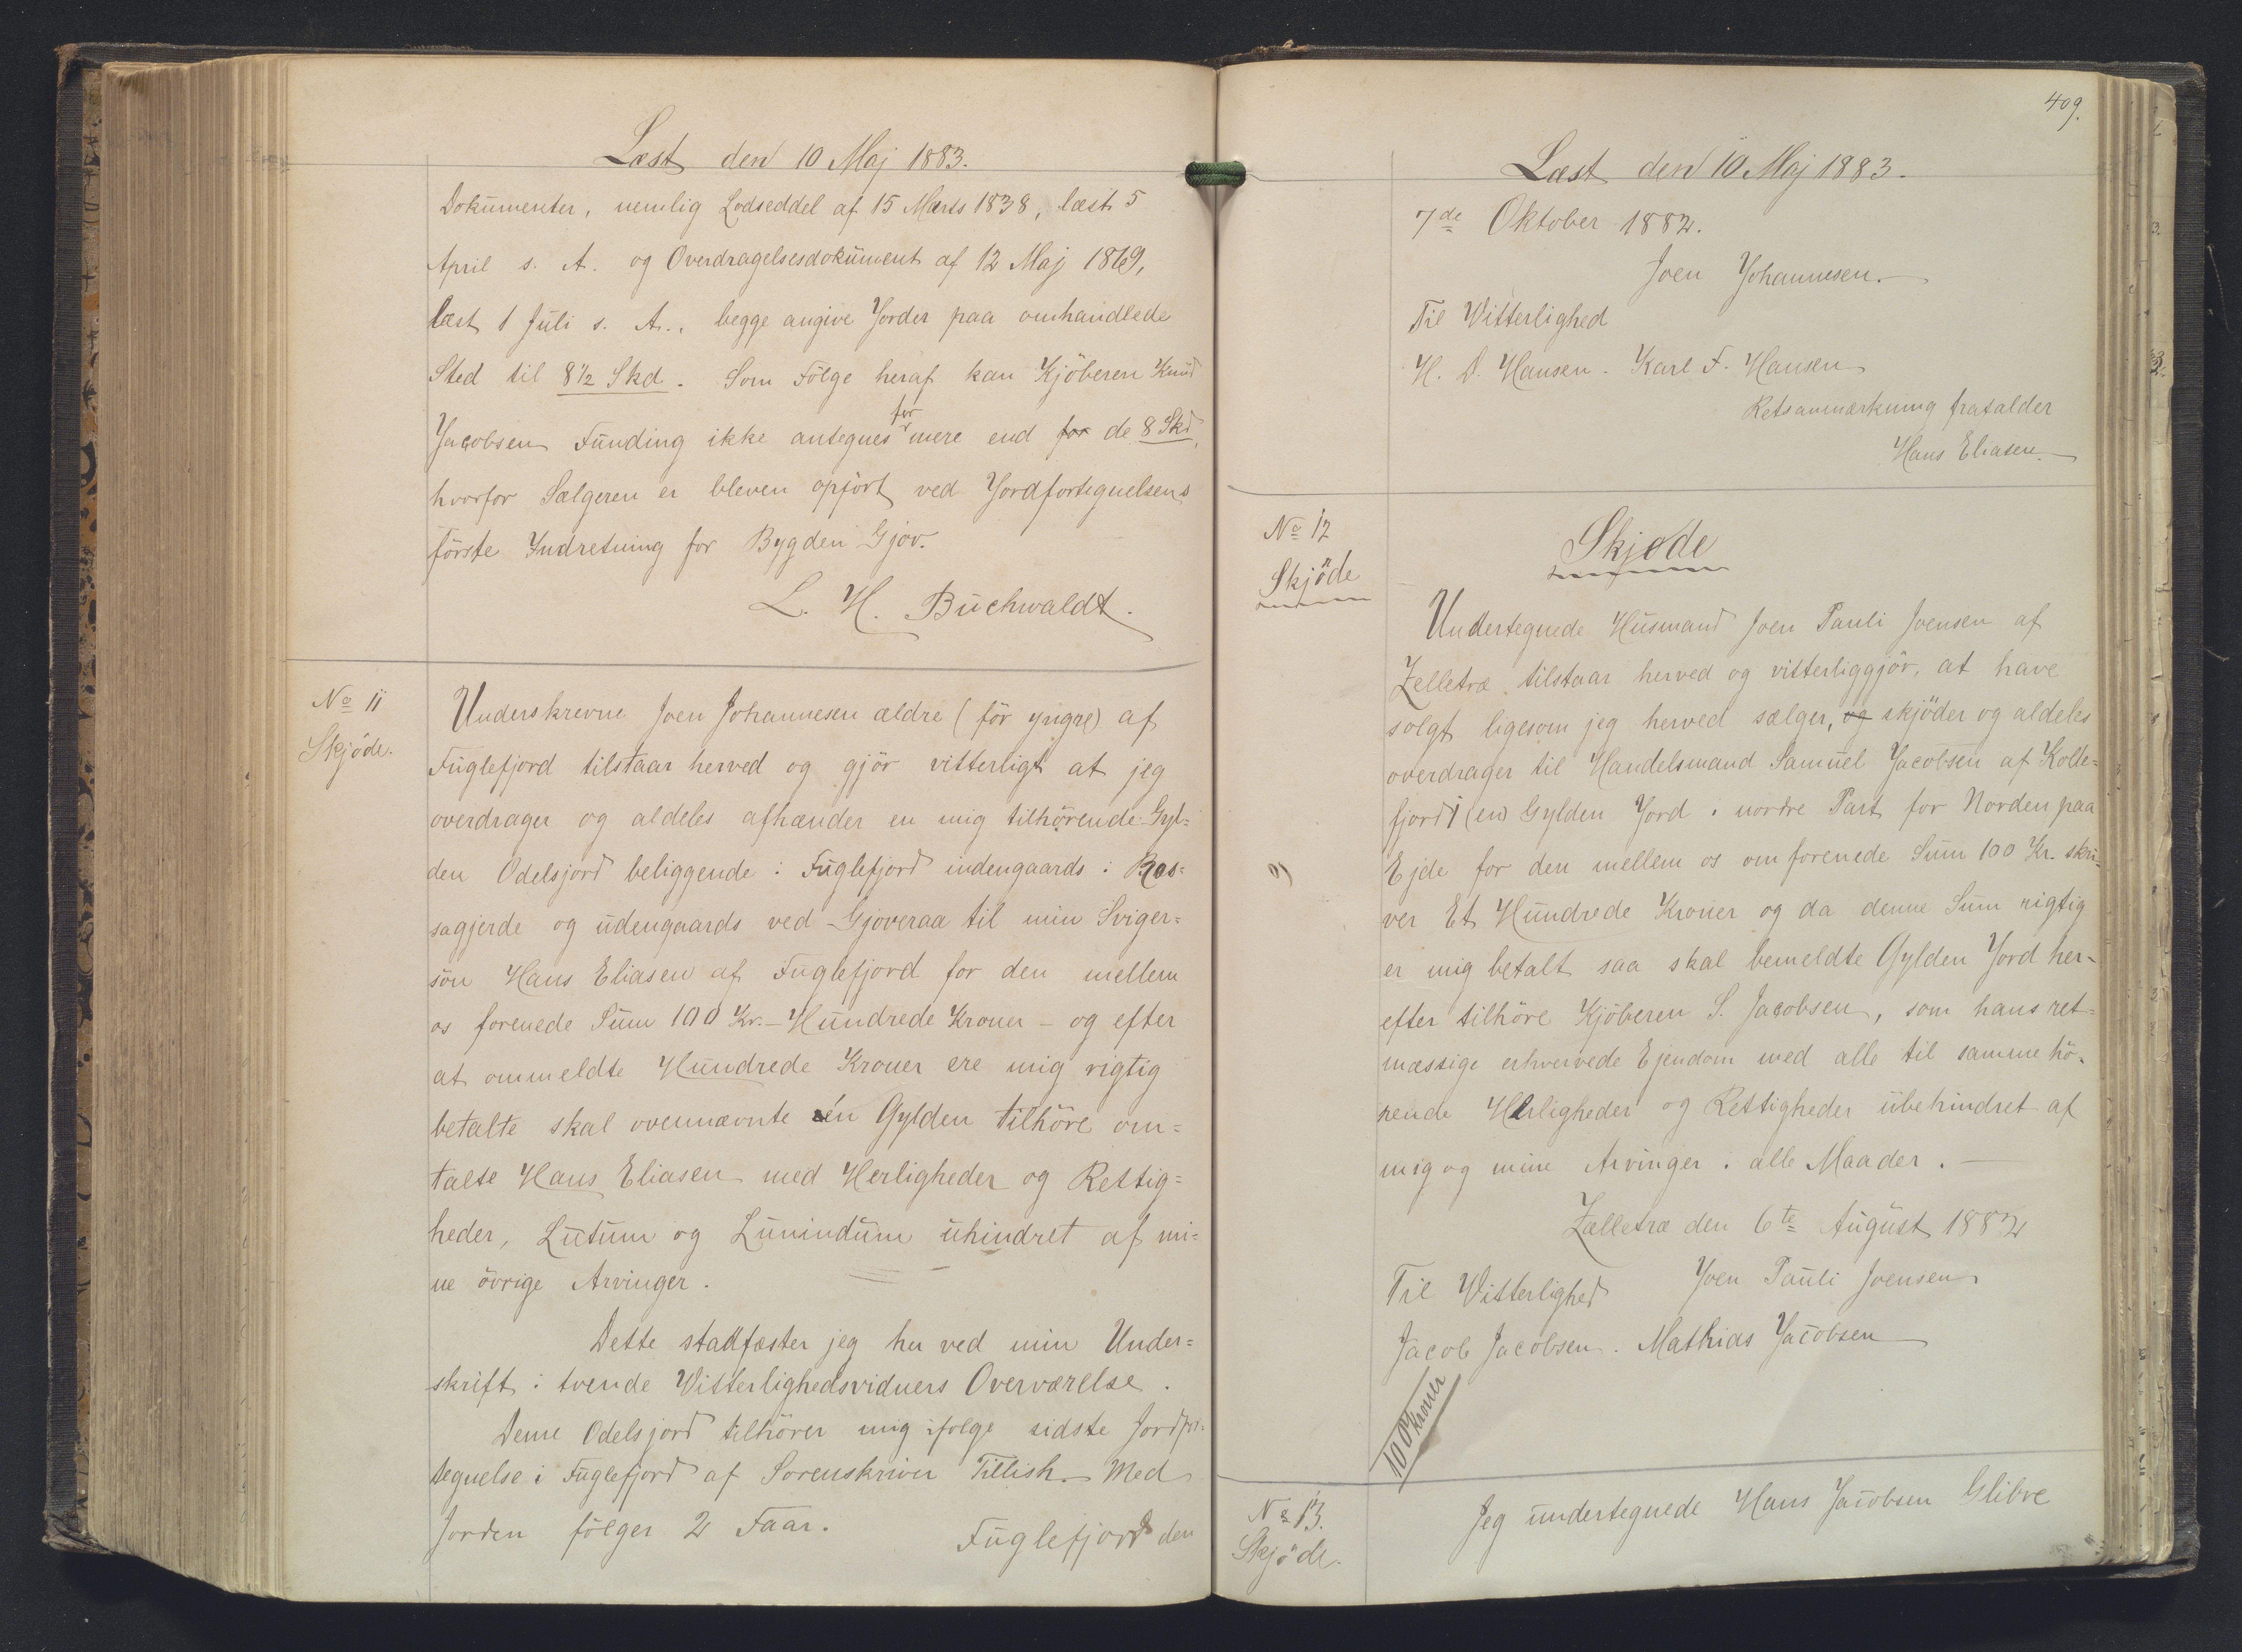 Læst den 10 Maj 1883.
Dokumenter, nemlig Lodseddel af 15 Marts 1838, læst 5
April s. A. og Overdragelsesdokument af 12 Maj 1869,
læst 1 Juli s. A., begge angive Jorder paa omhandlede
Sted til 8 1/2 Skd. Som Følge heraf kan Kjöberen Knud
Jacobsen Funding ikke antegnes for mere end for de 8 Skd,
hvorfor Sælgeren er bleven opfört ved Jordfortegnelsens
förste Indretning for Bygden Gjov.
L. H. Buchwaldt.
No 11
Skjöde.
Underskrevne Joen Johannesen ældre (för yngre) af
Fuglefjord tilstaar herved og gjör vitterligt at jeg
overdrager og aldeles afhænder en mig tilhörende Gyl=
den Odelsjord beliggende i Fuglefjord indengaards i Bos=
sagjerde og udengaards ved Gjoveraa til min Sviger=
sön Hans Eliasen af Fuglefjord for den mellem
os forenede Sum 100 Kr. - Hundrede Kroner - og efter
at ommeldte Hundrede Kroner ere mig rigtig
betalte skal ovennævnte én Gylden tilhöre om=
talte Hans Eliasen med Herligheder og Rettig=
heder, Lutum og Lunindum uhindret af mi=
ne övrige Arvinger.
Dette stadfæster jeg her ved min Under=
skrift i tvende Vitterlighedsvidners Overværelse.
Denne Odelsjord tilhörer mig ifolge sidste Jordfor=
tegnelse i Fuglefjord af Sorenskriver Tillish. Med
Jorden fölger 2 Faar.
Fuglefjord den
409.
Læst den 10 Maj 1883.
7de Oktober 1882.
Joen Johannesen.
Til Vitterlighed
H. D. Hansen. Karl F. Hansen
Retsanmærkning frafalder
Hans Eliasen.
No 12
Skjöde
Skjøde
Undertegnede Husmand Joen Pauli Joensen af
Zelletræ tilstaar herved og vitterliggjör, at have
solgt ligesom jeg herved sælger, og skjöder og aldeles
overdrager til Handelsmand Samuel Jacobsen af Kolle=
fjord 1 (en) Gylden Jord i nordre Part for Norden paa
Ejde for den mellem os omforenede Sum 100 Kr. skri=
ver Et Hundrede Kroner og da denne Sum rigtig
er mig betalt saa skal bemeldte Gylden Jord her=
efter tilhöre Kjöberen S. Jacobsen, som hans ret=
mæssige erhvervede Ejendom med alle til samme hö=
rende Herligheder og Rettigheder ubehindret af
mig og mine Arvinger i alle Maader.
Zælletræ den 6te August 1882
Til Vitterlighed Joen Pauli Joensen
Jacob Jacobsen. Mathias Jacobsen
100 Kroner
No 13.
Skjöde.
Jeg undertegnede Hans Jacobsen Glibre